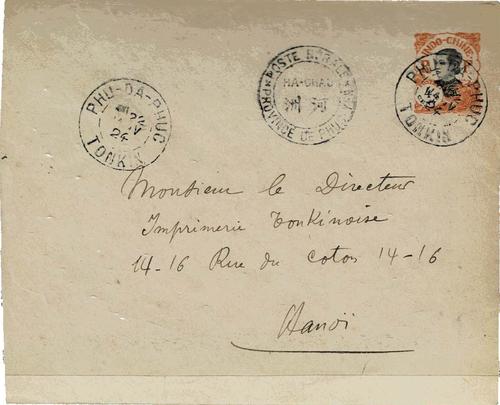 PHU-DA-PHUC
24
TONKIN
POSTE RURALE
HA-CHAU
PROVINCE DE PHUC
INDO-CHINE
PHU-DA-PHUC
TONKIN
Monsieur le Directeur
Imprimerie Tonkinoise
14-16 Rue du coton 14-16
Hanoï